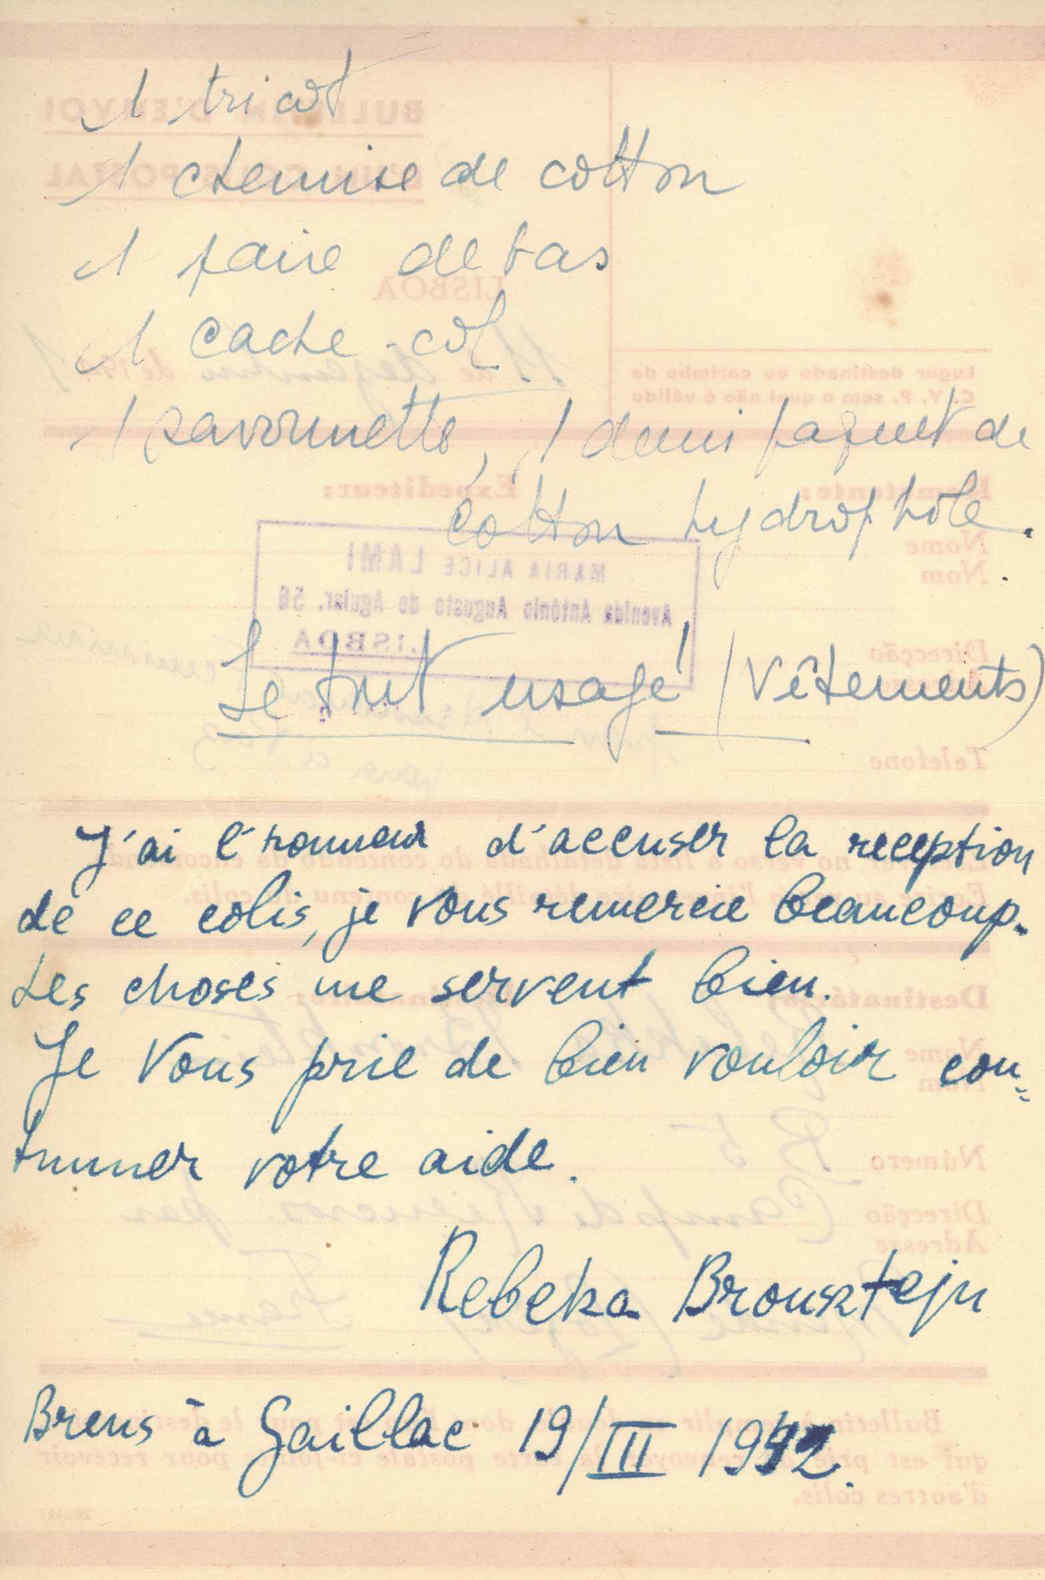 1 tricot
1 chemise de cotton
1 paire de bas
1 cache-col
1 savonnette, 1 demi paquet de
cotton hydrophile.
Le tout usagé (Vêtements)
J'ai l'honneur d'accuser la reception
de ce colis, je vous remercie beaucoup.
Les choses me servent bien.
Je Vous prie de bien vouloir con=
tinuer votre aide.
Rebeka Brousztejn
Brens à Gaillac 19/III 1942.